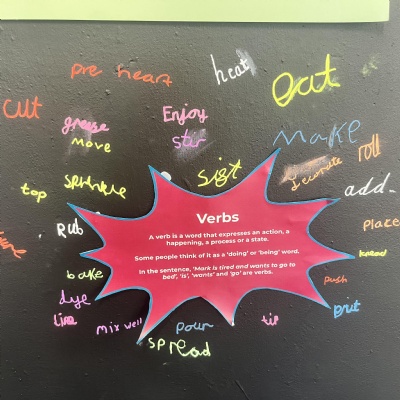 pre heart
heat
eat
cut
grease
Enjoy
move
stir
Make
roll
decorate
sigt
top
sprinkle
add
Rub
Place
Verbs
A verb is a word that expresses an action, a
happening, a process or a state.
Some people think of it as a 'doing' or 'being' word.
In the sentence, 'Mark is tired and wants to go to
bed', 'is', 'wants' and 'go' are verbs.
knead
bake
push
dye
put
line
mix well
pour
tip
spread